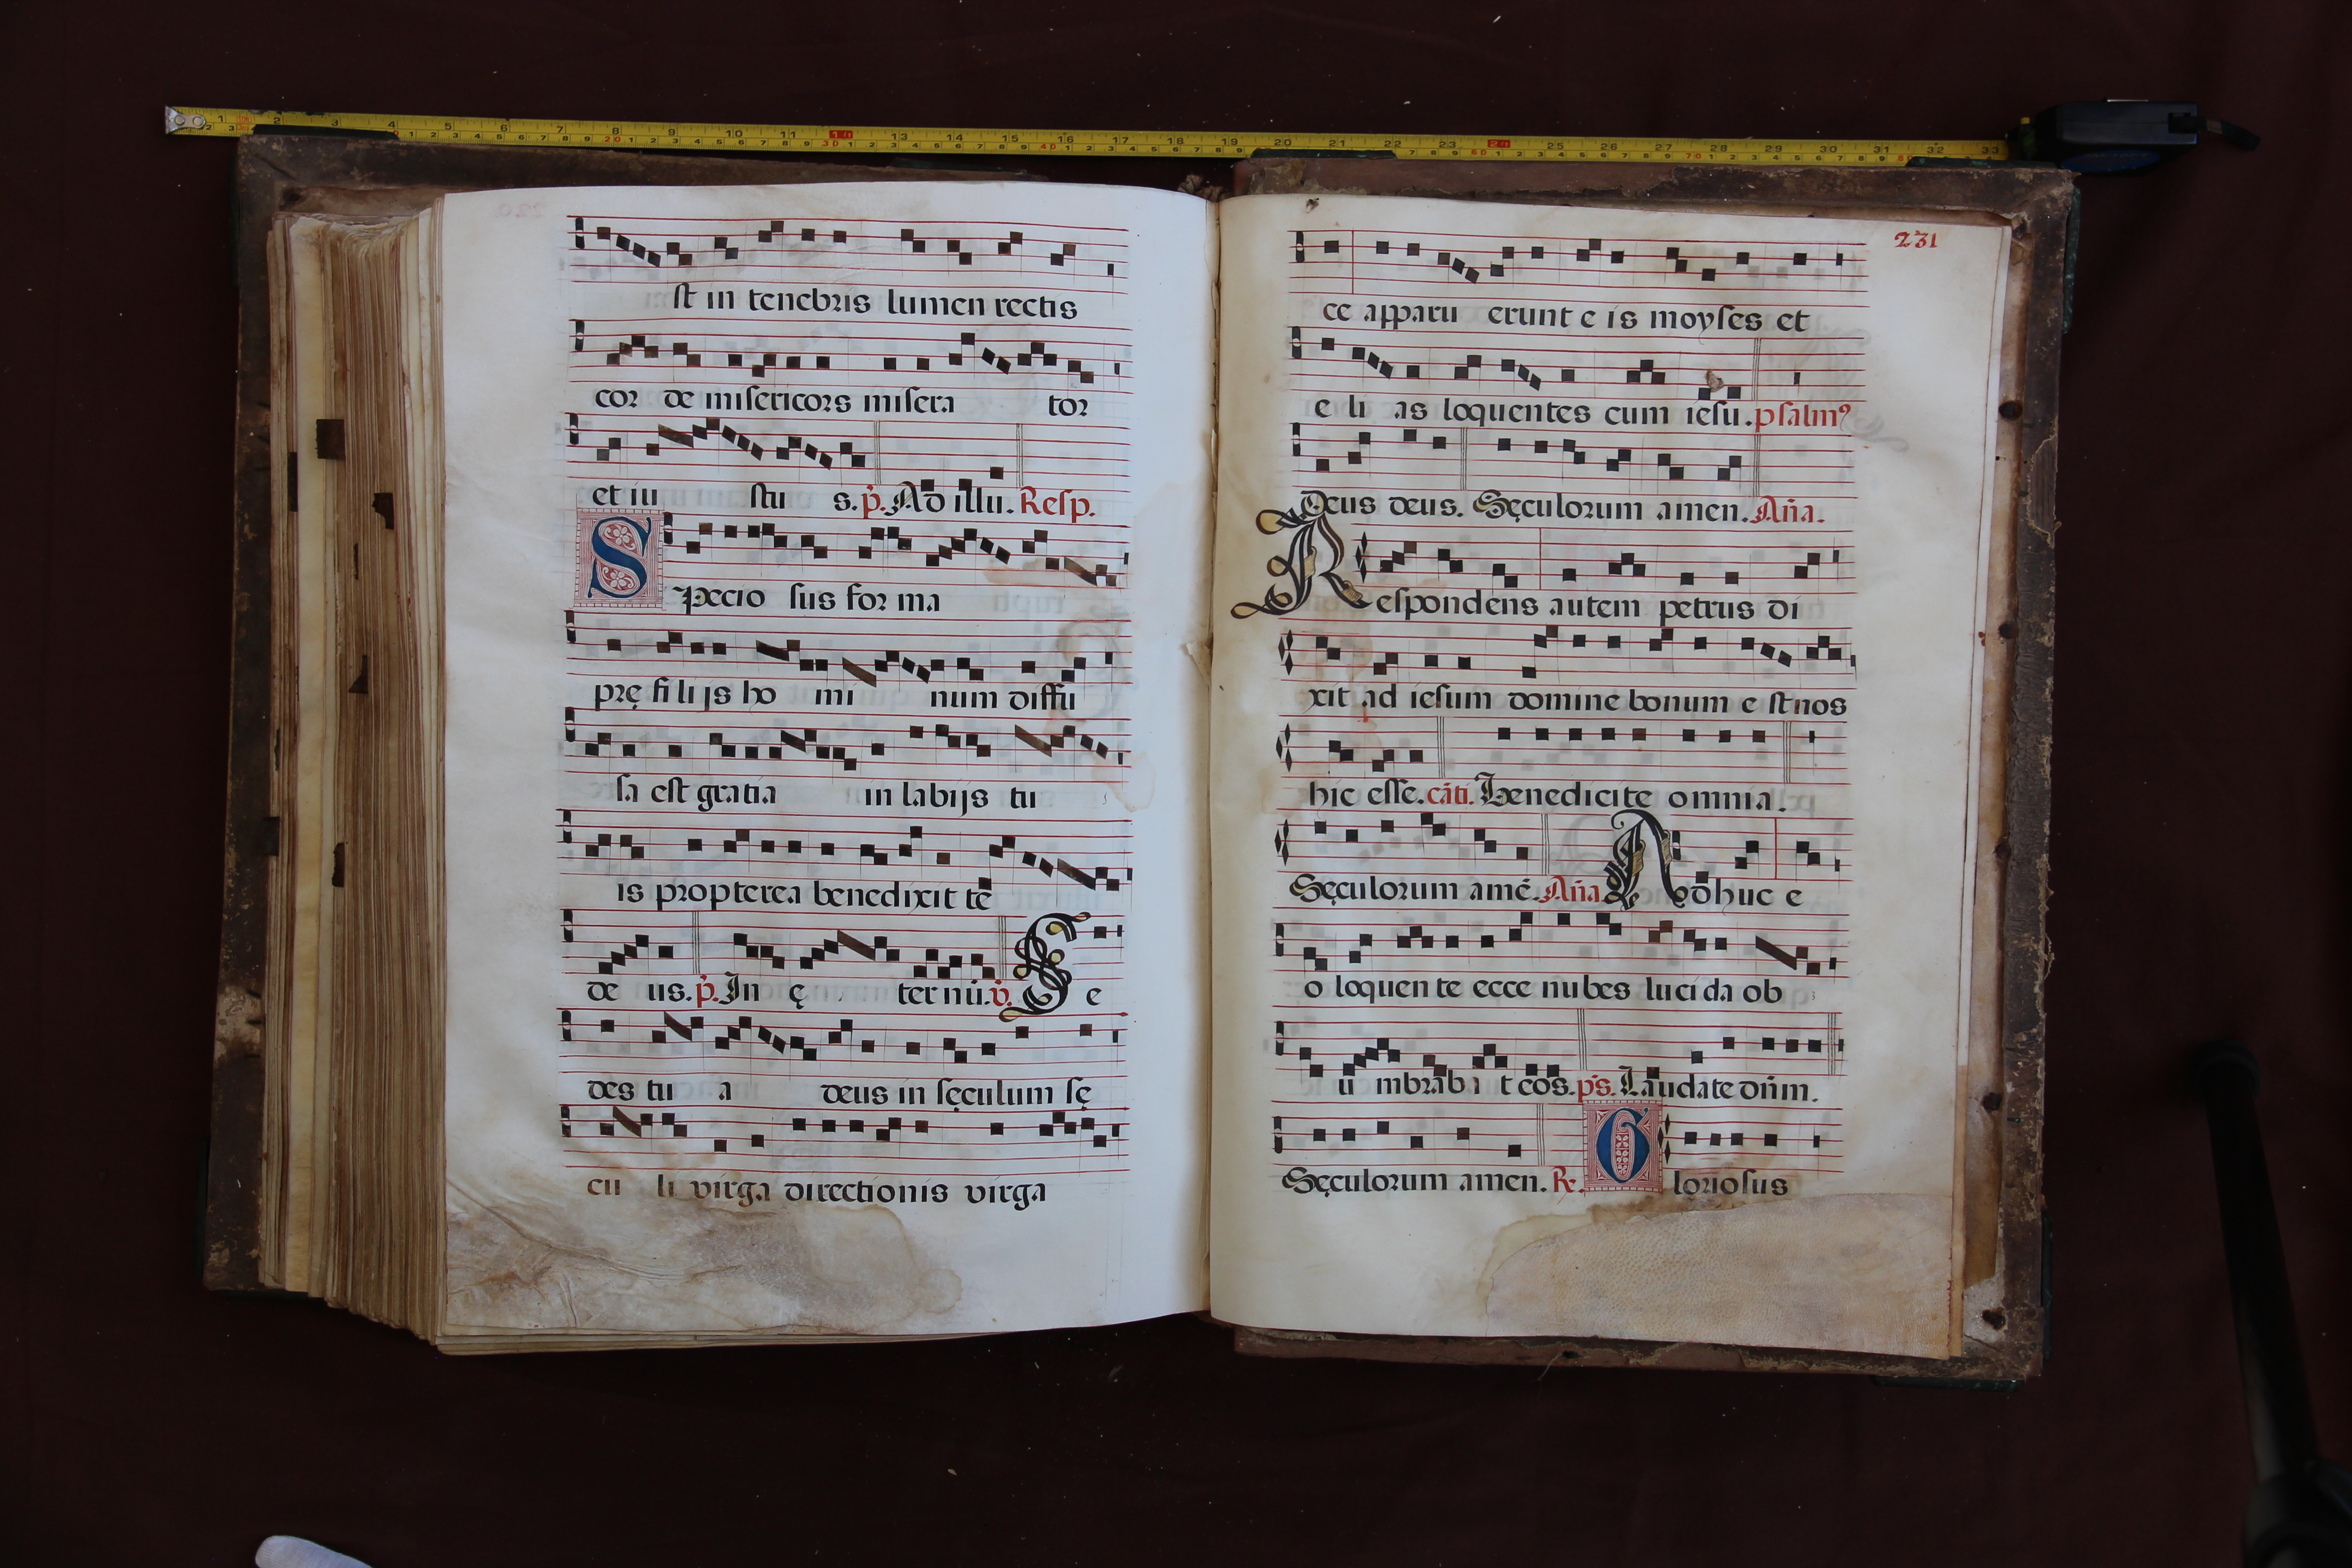 st in tenebris lumen rectis
cor de misericors misera tor
et iu stu s. p̄. Ad illu. Resp.
Specio sus for ma
prę fi li js ho mi num diffu
sa est gratia in labijs tu
is propterea benedixit te
de us. p̄. In ę ternū. v̄. Se
des tu a deus in sęculum sę
cu li virga directionis virga
231
ce apparu erunt e is moyses et
e li as loquentes cum iesu. psalmꝰ
Deus deus. Sęculorum amen. Añа.
Respondens autem petrus di
xit ad iesum domine bonum e st nos
hic esse. cāti. Benedicite omnia.
Sęculorum amē. Aña Adhuc e
o loquen te ecce nubes luci da ob
u mbrab i t eos. ps. Laudate dn̄m.
Sęculorum amen. R. Gloriosus